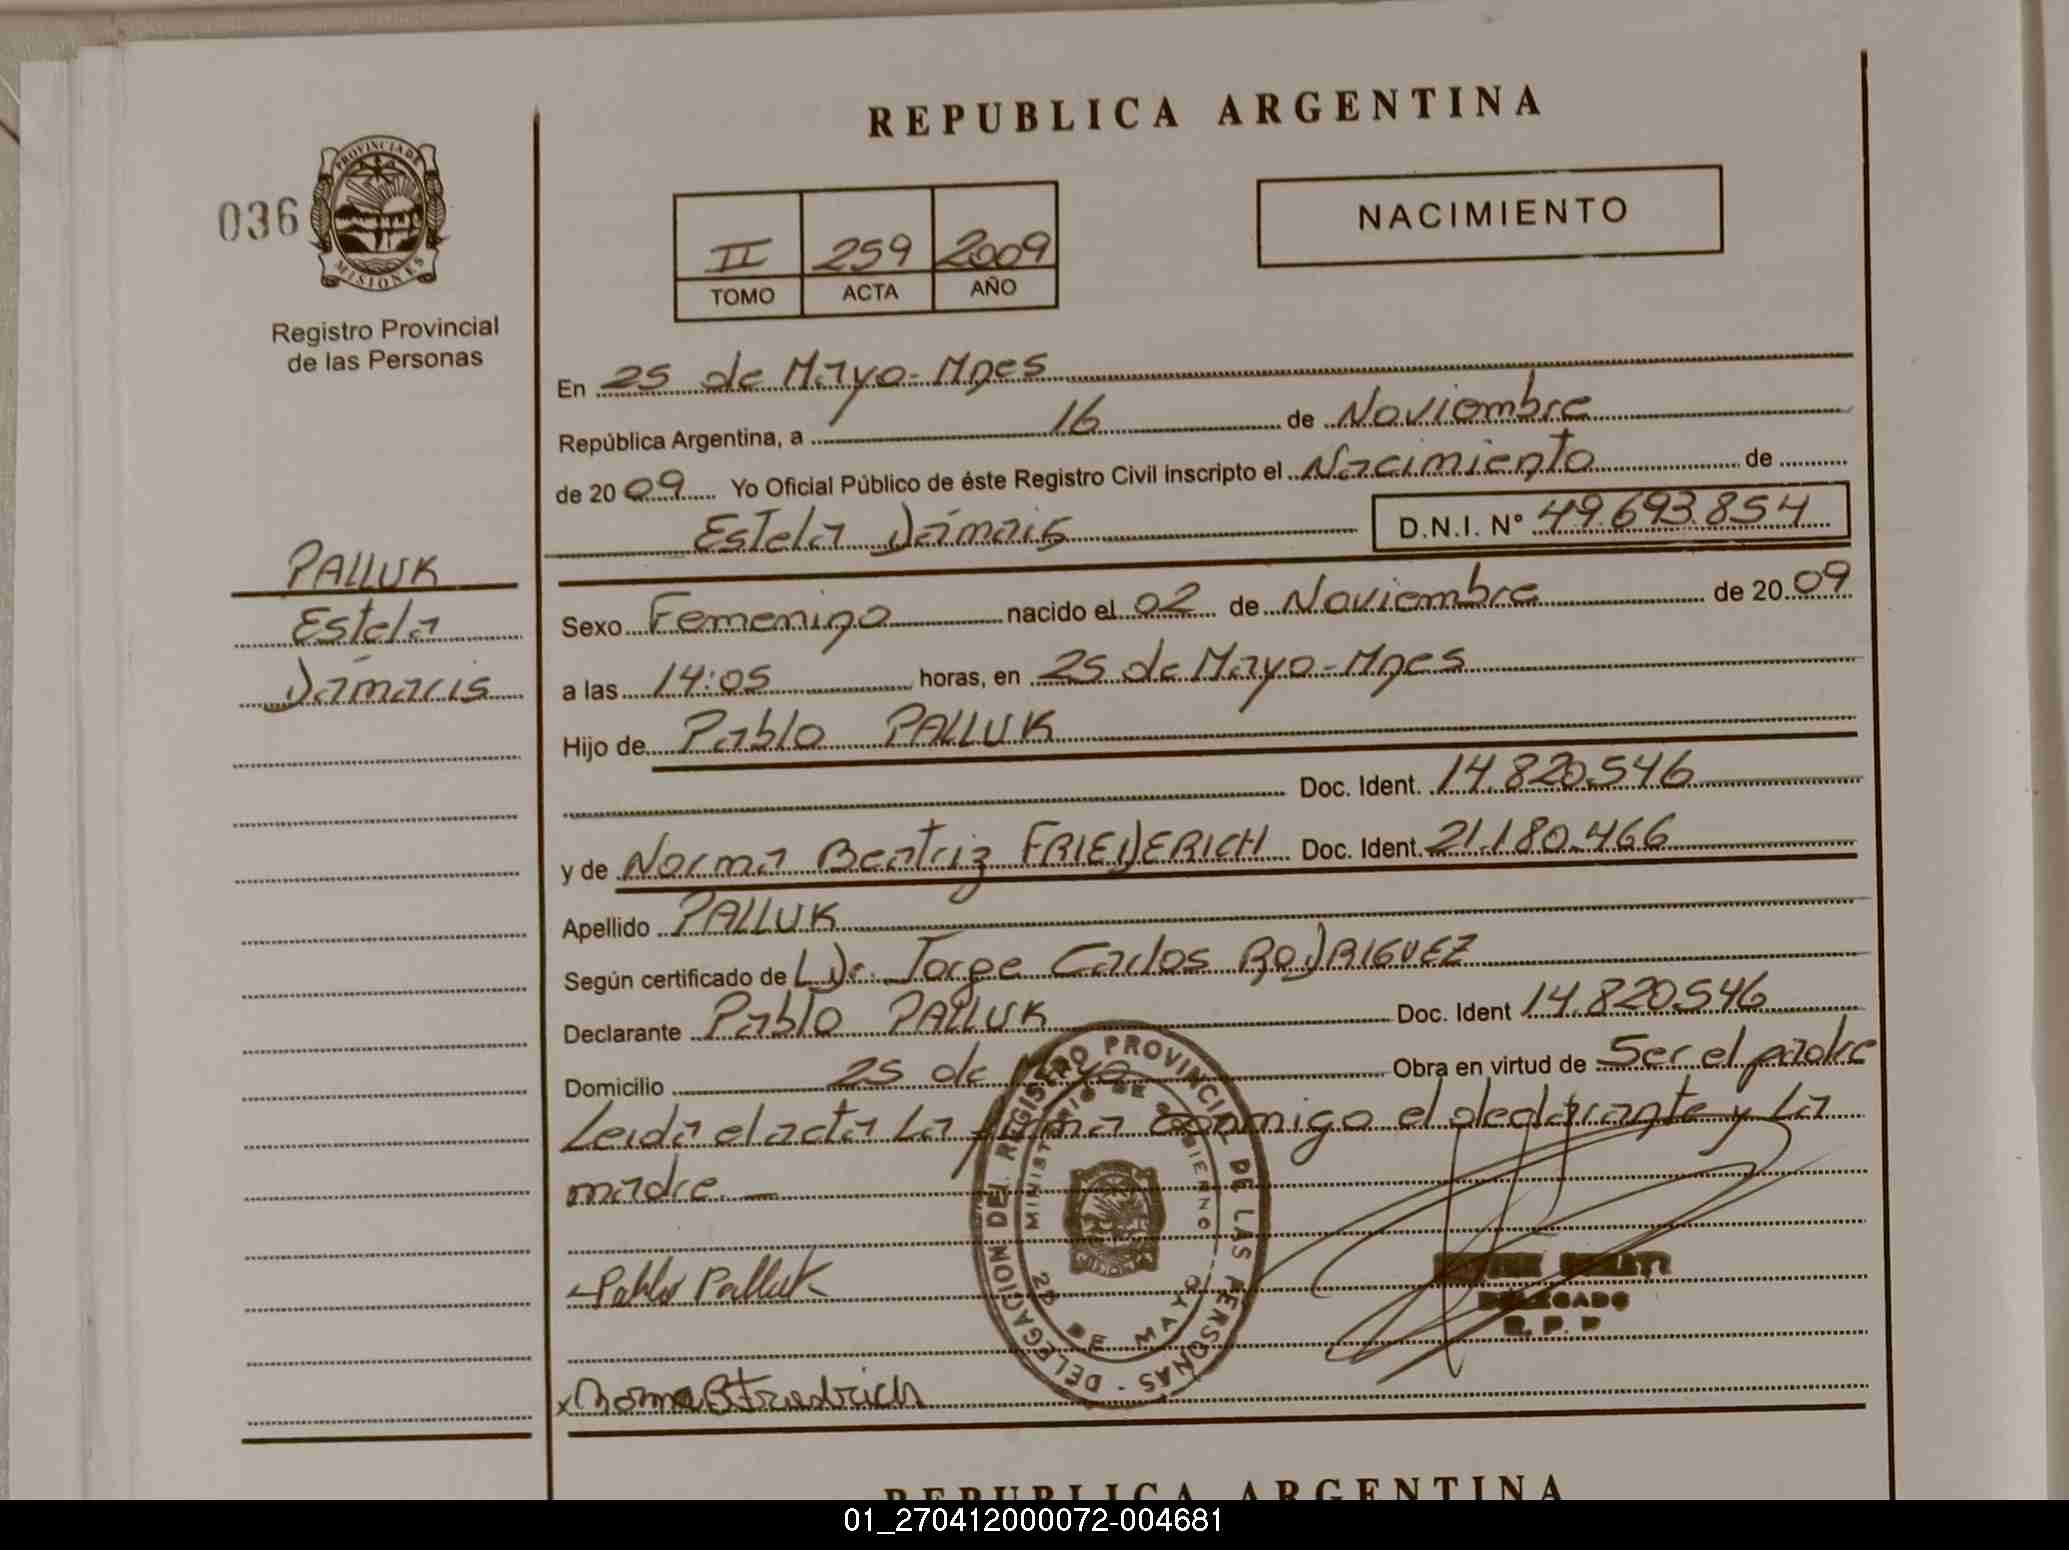 REPUBLICA ARGENTINA
036
PROVINCIA DE
MISIONES
Registro Provincial
de las Personas
II 259 2009
TOMO ACTA AÑO
NACIMIENTO
En 25 de Mayo-Mnes
República Argentina, a 16 de Noviembre
de 2009 Yo Oficial Público de éste Registro Civil inscripto el Nacimiento de
Estela Dámaris
D.N.I. Nº 49.693.854
PALLUK
Estela
Dámaris
Sexo Femenino nacido el 02 de Noviembre de 2009
a las 14:05 horas, en 25 de Mayo-Mnes
Hijo de Pablo PALLUK
Doc. Ident. 14.820.546
y de Norma Beatriz FRIEDERICH Doc. Ident. 21.180.466
Apellido PALLUK
Según certificado de L Dr. Jorge Carlos RODRIGUEZ
Declarante Pablo PALLUK Doc. Ident 14.820.546
Domicilio 25 de Mayo Obra en virtud de Ser el padre
Leida el acta La firma conmigo el declarante y La
madre.—
Pablo Palluk
DELEGACION DEL REGISTRO PROVINCIAL DE LAS PERSONAS -
MINISTERIO DE GOBIERNO
25 DE MAYO
DELEGADO
R. P. P
x Norma B Friedrich
REPUBLICA ARGENTINA
01_270412000072-004681